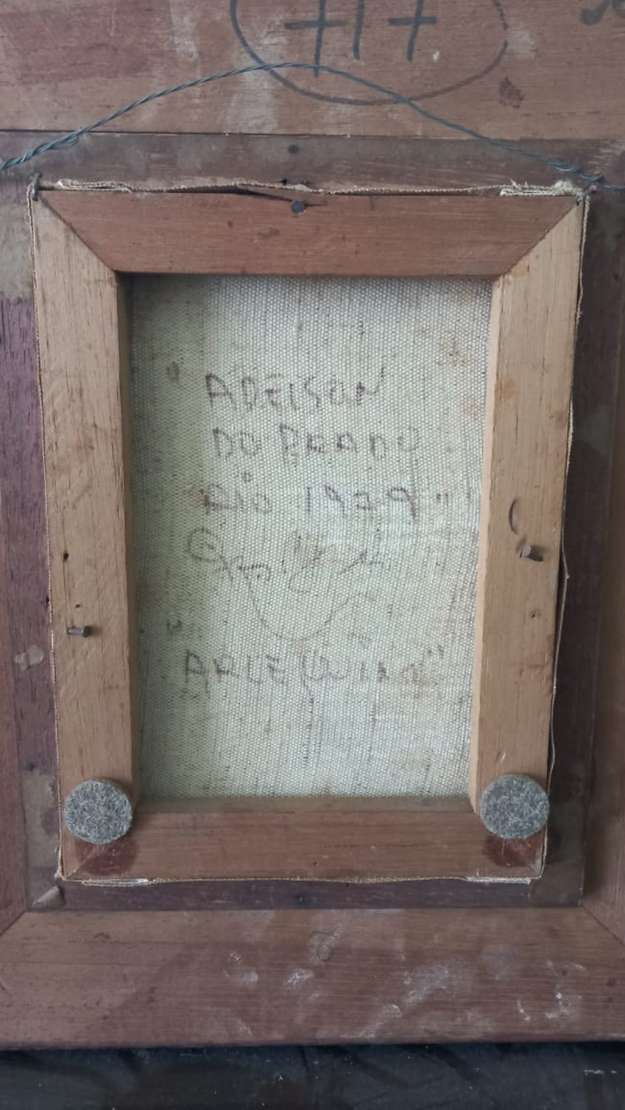 717
"ADELSON
DO PRADO
RIO 1979"
"ARLEQUIM"